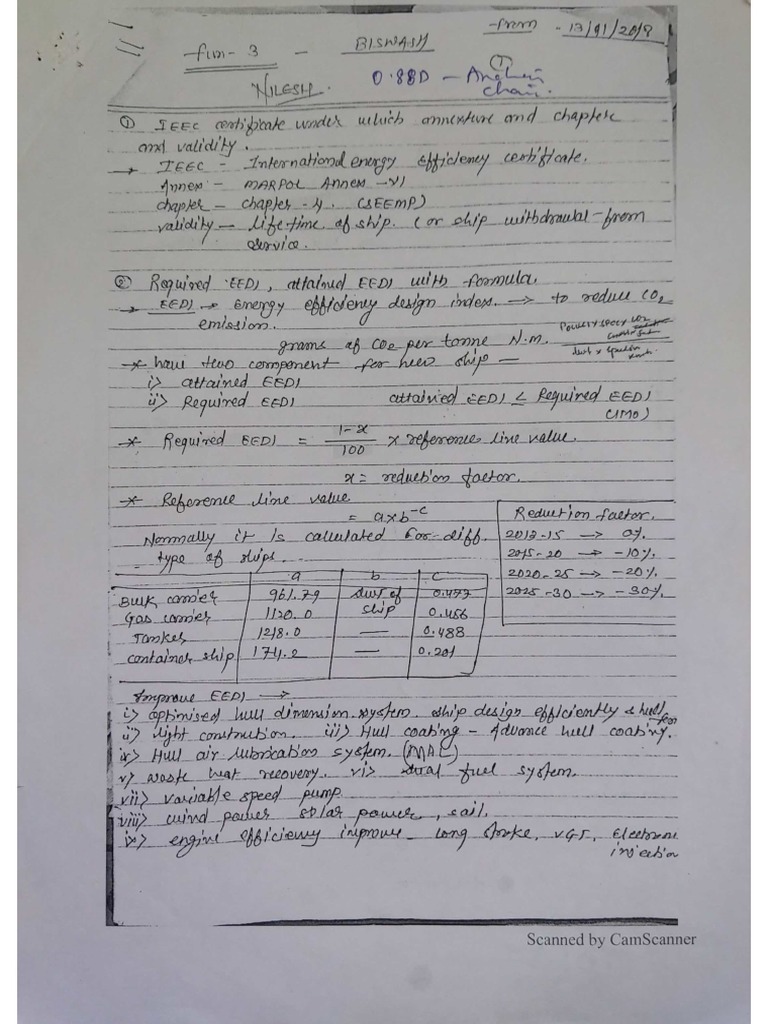 from - 13/01/2018
fun - 3 - BISWASH
①
NILESH. 0.88D - Anchor
chain.
① IEEC certificate under which annexture and chapter
and validity.
→ IEEC - International energy efficiency certificate.
Annex - MARPOL Annex - VI
chapter - chapter - 4. (SEEMP)
validity - life-time of ship. (or ship withdrawal from
service.
② Required EEDI, attained EEDI with formula.
→ EEDI → Energy efficiency design index. → to reduce CO2
emission.
grams of CO2 per tonne N.m.
* have two component for new ship -
i) attained EEDI
ii) Required EEDI attained EEDI ≤ Required EEDI
(IMO)
* Required EEDI = 1-x / 100 × reference line value.
x = reduction factor.
* Reference line value
= a×b^-c
Normally it is calculated for diff.
type of ships.
Reduction factor.
2013-15 → 0%
2015-20 → -10%
2020-25 → -20%
2025-30 → -30%
a b c
Bulk carrier 961.79 dwt of 0.477
Gas carrier 1120.0 ship 0.456
Tanker 1218.0 — 0.488
container ship 174.2 — 0.201
Improve EEDI →
i) optimised hull dimension system. ship design efficiently & hull form
ii) light construction. iii) Hull coating - Advance hull coating.
iv) Hull air lubrication system. (MAL)
v) waste heat recovery. vi) dual fuel system.
vii) variable speed pump.
viii) wind power solar power, sail.
ix) engine efficiency improve - long stroke, VGT, Electronic
injection
Scanned by CamScanner